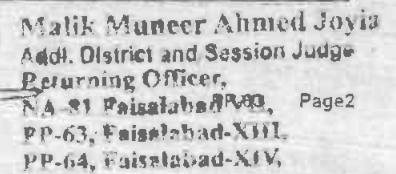 Malik Muneer Ahmed Joyia
Addl. District and Session Judge
Returning Officer,
NA-81 Faisalabad Page2
PP-63, Faisalabad-XIII,
PP-64, Faisalabad-XIV,